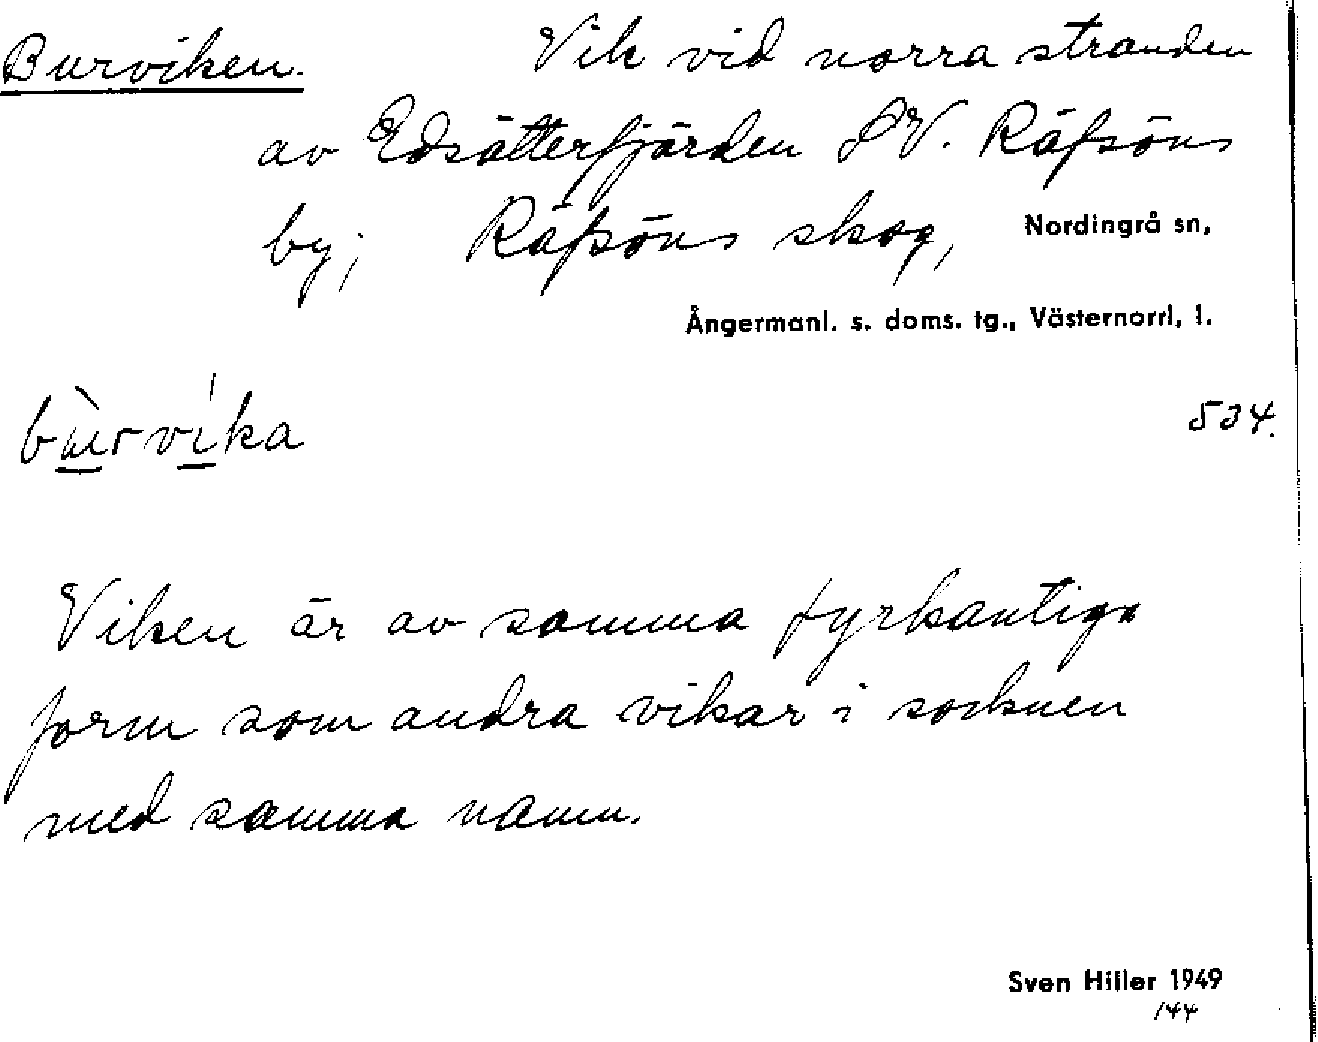 Burviken. Vik vid norra stranden
av Edsätterfjärden SV. Räfsöns
by; Räfsöns skog, Nordingrå sn,
Ångermanl. s. doms. tg., Västernorrl. l.
bùrvíka 534.
Viken är av samma fyrkantiga
form som andra vikar i socknen
med samma namn.
Sven Hiller 1949
144